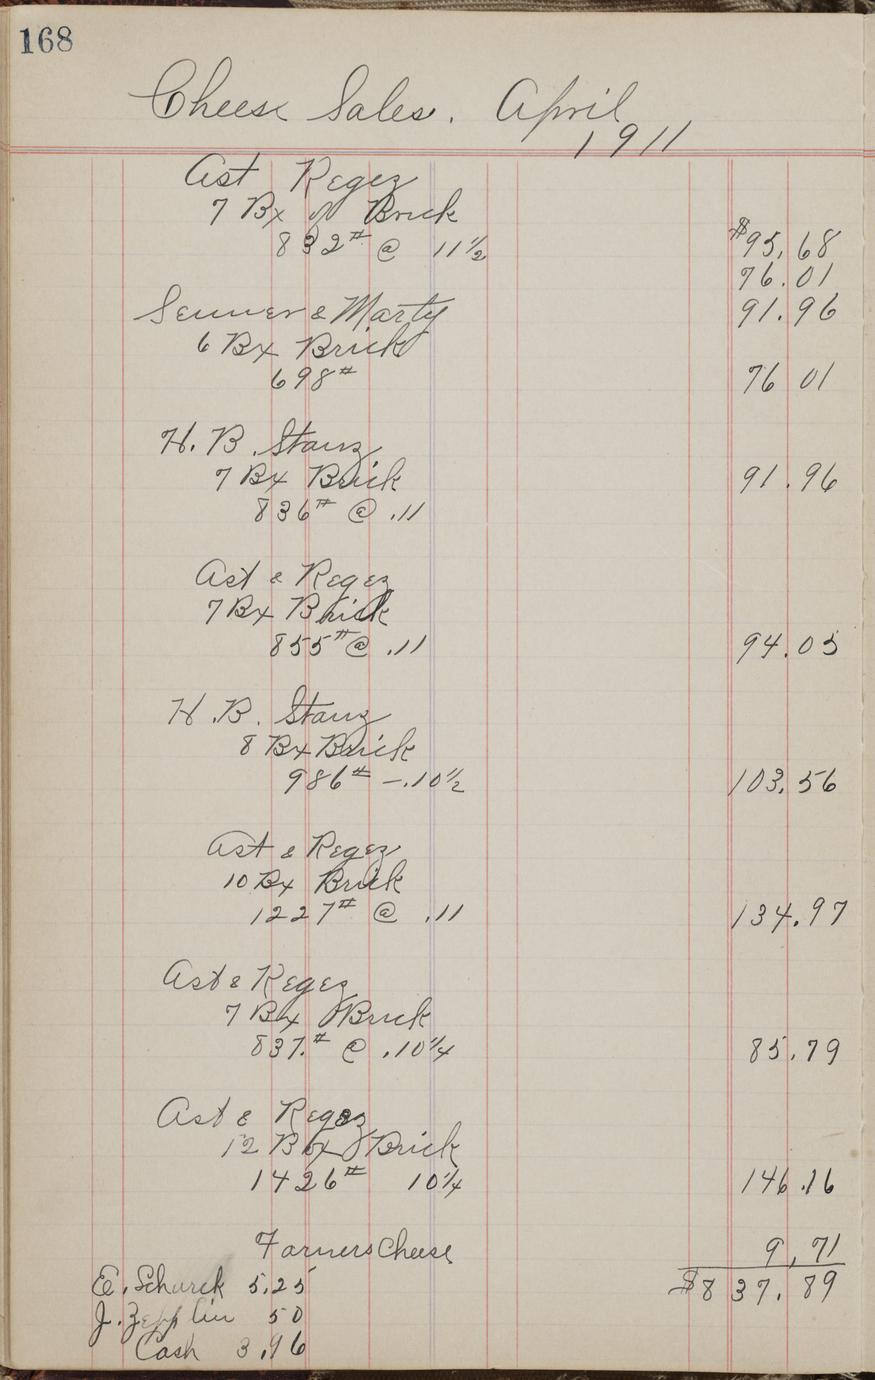 168
Cheese Sales. April
1911
Ast Regez
7 Bx of Brick
832# @ 11 1/2 $95.68
76.01
Senner & Marty 91.96
6 Bx Brick
698# 76 01
H. B. Stanz
7 Bx Brick 91.96
836# @ .11
Ast & Regez
7 Bx Brick
855# @ .11 94.05
H. B. Stanz
8 Bx Brick
986# - .10 1/2 103.56
Ast & Regez
10 Bx Brick
1227# @ .11 134.97
Ast & Regez
7 Bx Brick
837.# @ .10 1/4 85.79
Ast & Regez
12 Bx Brick
1426# 10 1/4 146.16
Farmers Cheese 9.71
E. Schurck 5.25 $837.89
J. Zepplin 50
Cash 3.96